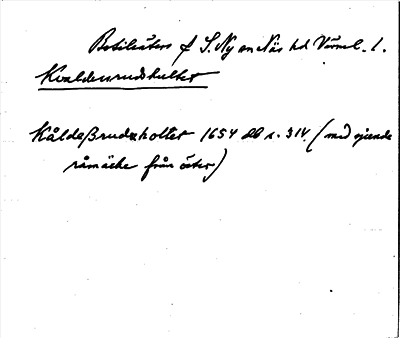 f S. Ny en Näs hd Värml. l.
Kvaldenrudshultet
KåldeßrudzKoltet 1654 db s. 314. (med ejende
råmärke från öster)